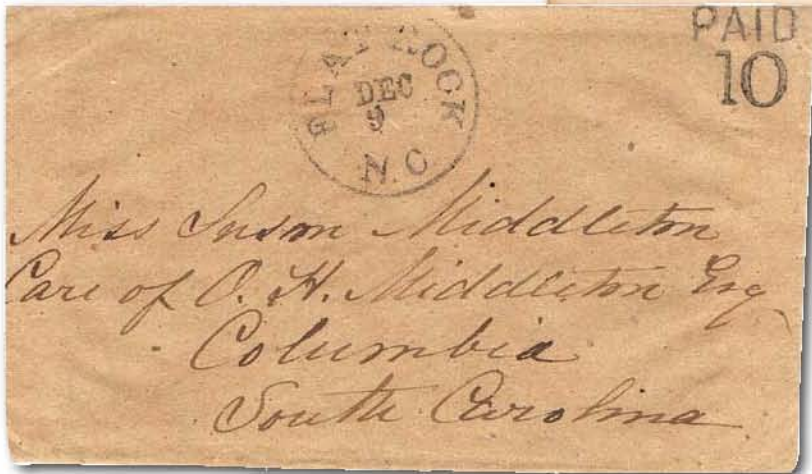 PAID
10
FLAT ROCK
DEC
9
N.C.
Miss Susan Middleton
Care of O. H. Middleton Esq
Columbia
South Carolina